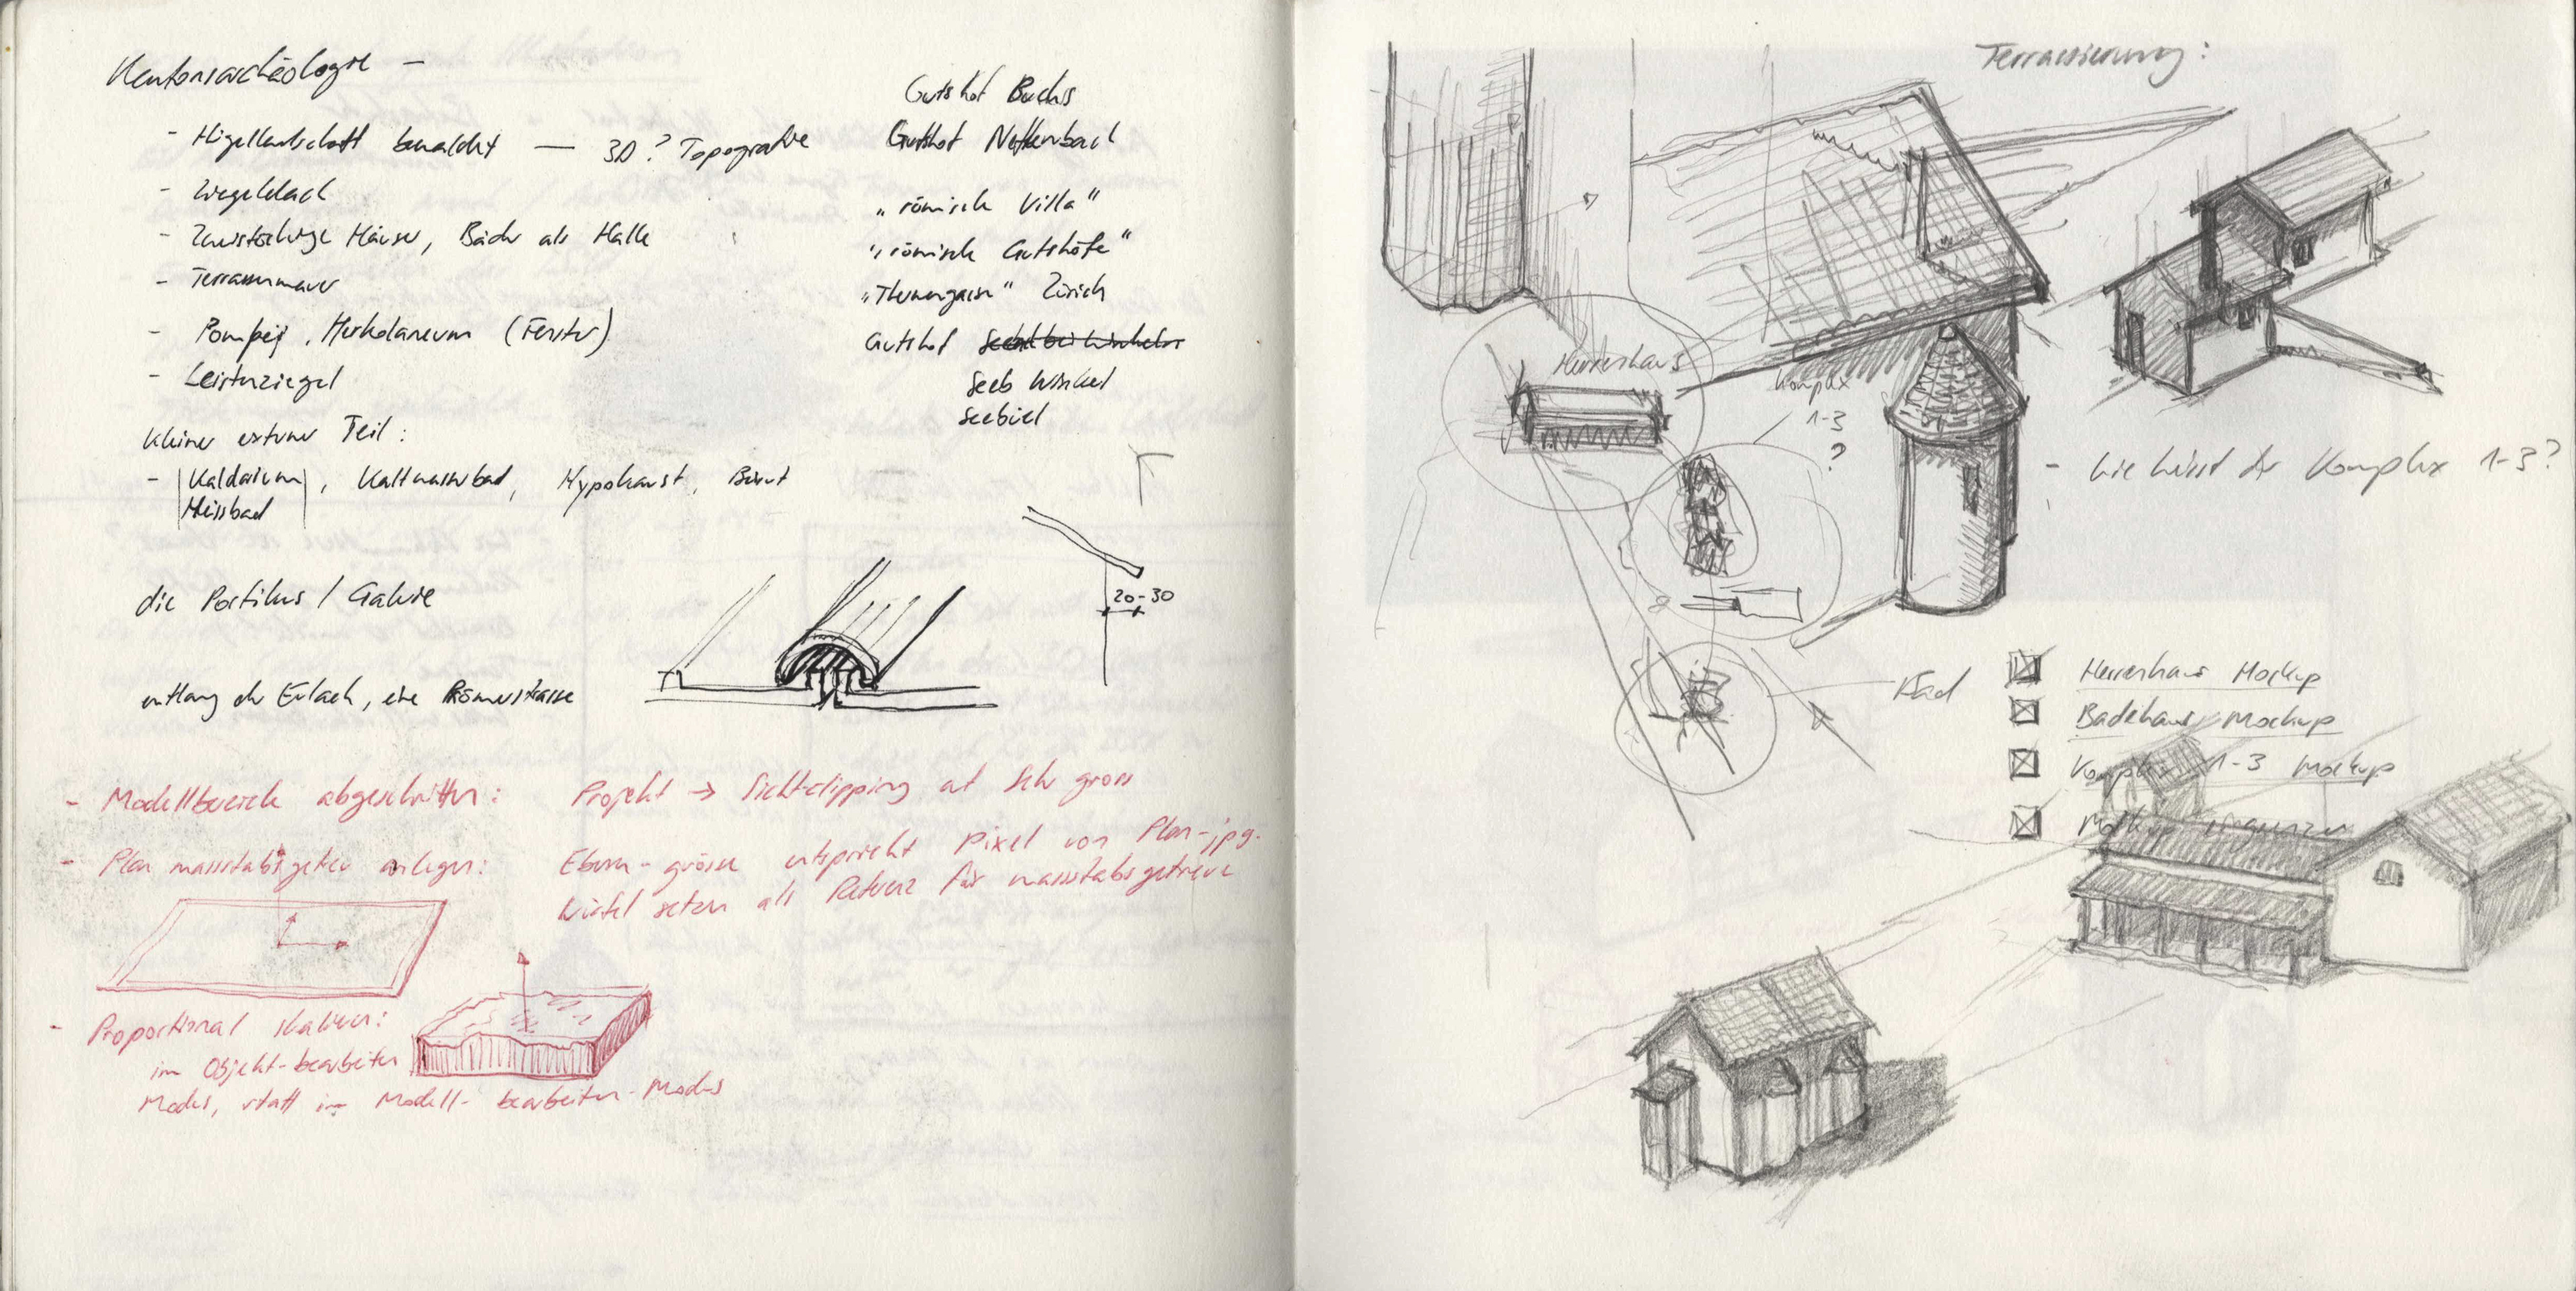 Kantonsarchäologie –
- Hügellandschaft bewaldet — 3D? Topografie
- Ziegeldach
- Zweistöckige Häuser, Bäder als Halle
- Terrassenmauer
- Pompeij, Herkolaneum (Fenster)
- Leistenziegel
kleiner externer Teil:
- Kaldarium, Kaltwasserbad, Hypokaust,
Heissbad
die Portikus / Galerie
entlang der Eulach, eine Römerstrasse
Gutshof Buchs
Gutshof Neftenbach
"römische Villa"
"römische Gutshöfe"
"Thermengasse" Zürich
Gutshof
Seeb Winkel
20-30
- Modellbereich abgeschnitten: Projekt → Sichtclipping auf Sehr gross
- Plan massstabsgetreu anlegen: Ebenen-grösse entspricht Pixel von Plan-jpg.
Würfel setzen als Referenz für massstabsgetreue
- Proportional skalieren:
im Objekt-bearbeiten
Modus, statt im Modell-bearbeiten-Modus
Terrassierung:
Herrenhaus
Komplex
1-3
?
- Wie heisst der Komplex 1-3?
Herrenhaus Mockup
Badehaus Mockup
Komplex 1-3 Mockup
Mockup